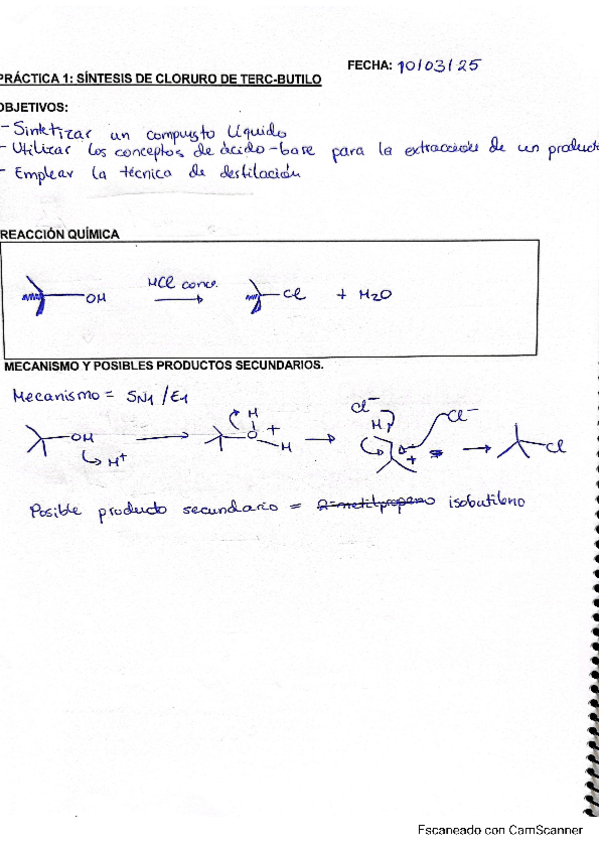 FECHA: 10/03/25
PRÁCTICA 1: SÍNTESIS DE CLORURO DE TERC-BUTILO
OBJETIVOS:
- Sintetizar un compuesto líquido
- Utilizar los conceptos de ácido-base para la extracción de un product
- Emplear la técnica de destilación
REACCIÓN QUÍMICA
OH HCl conc. Cl + H2O
MECANISMO Y POSIBLES PRODUCTOS SECUNDARIOS.
Mecanismo = SN1 / E1
OH H+ H O + H Cl- H + Cl- Cl
Posible producto secundario = 2-metilpropeno isobutileno
Escaneado con CamScanner